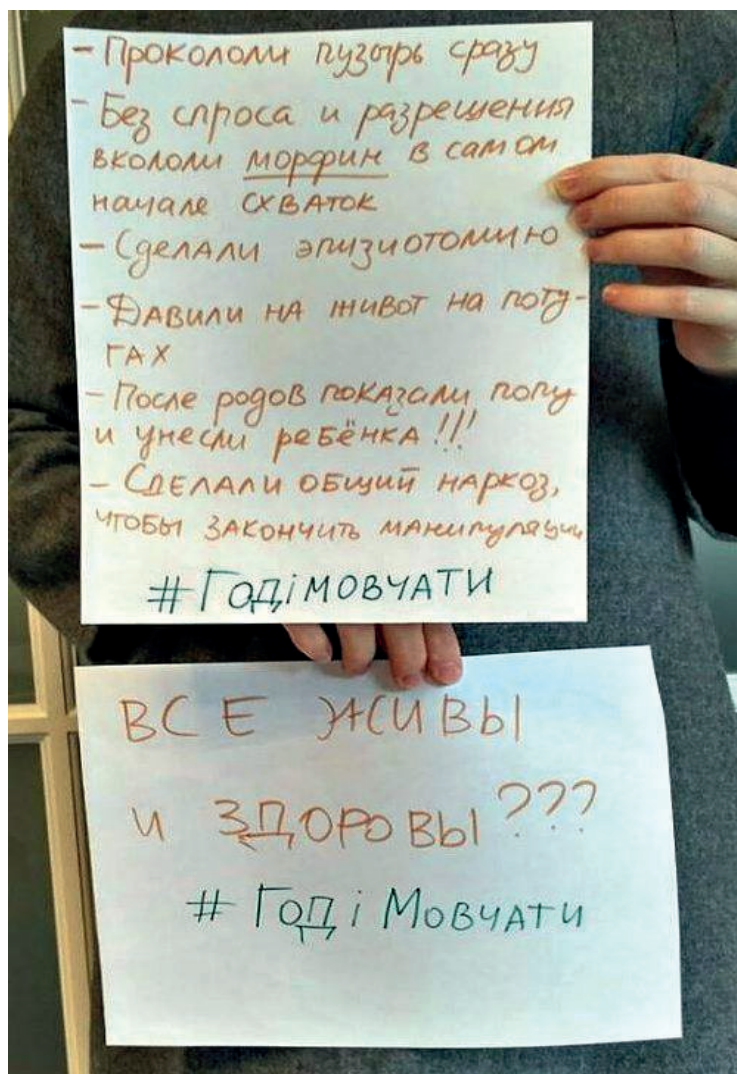 - Прокололи пузырь сразу
- Без спроса и разрешения
вкололи морфин в самом
начале схваток
- Сделали эпизиотомию
- Давили на живот на поту-
гах
- После родов показали попу
и унесли ребёнка!!!
- Сделали общий наркоз,
чтобы закончить манипуляции
#Годімовчати
ВСЕ ЖИВЫ
и ЗДОРОВЫ???
#ГодіМовчати